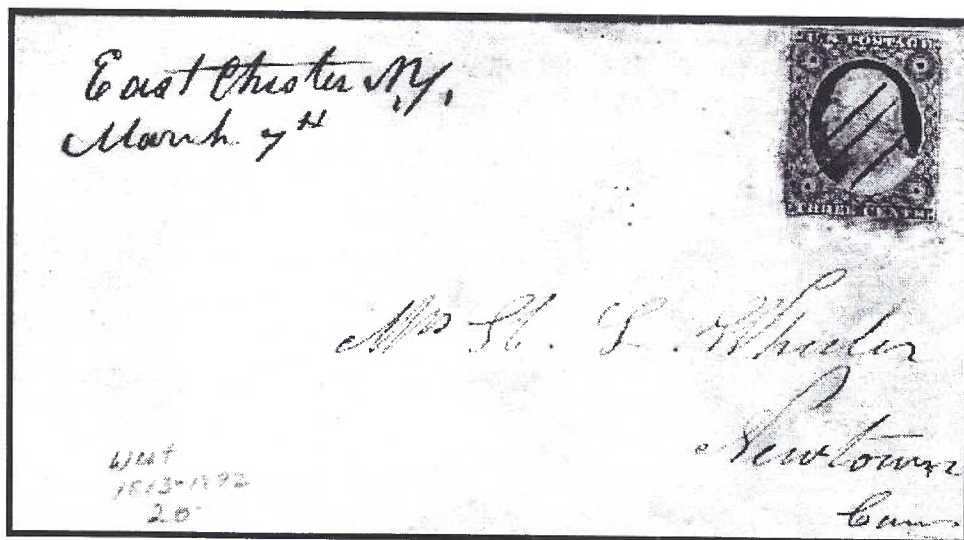 East Chester N.Y.
March 7th
U.S. POSTAGE
THREE CENTS
Mrs H. L. Wheeler
Newtown
Conn.
West
1813-1892
20